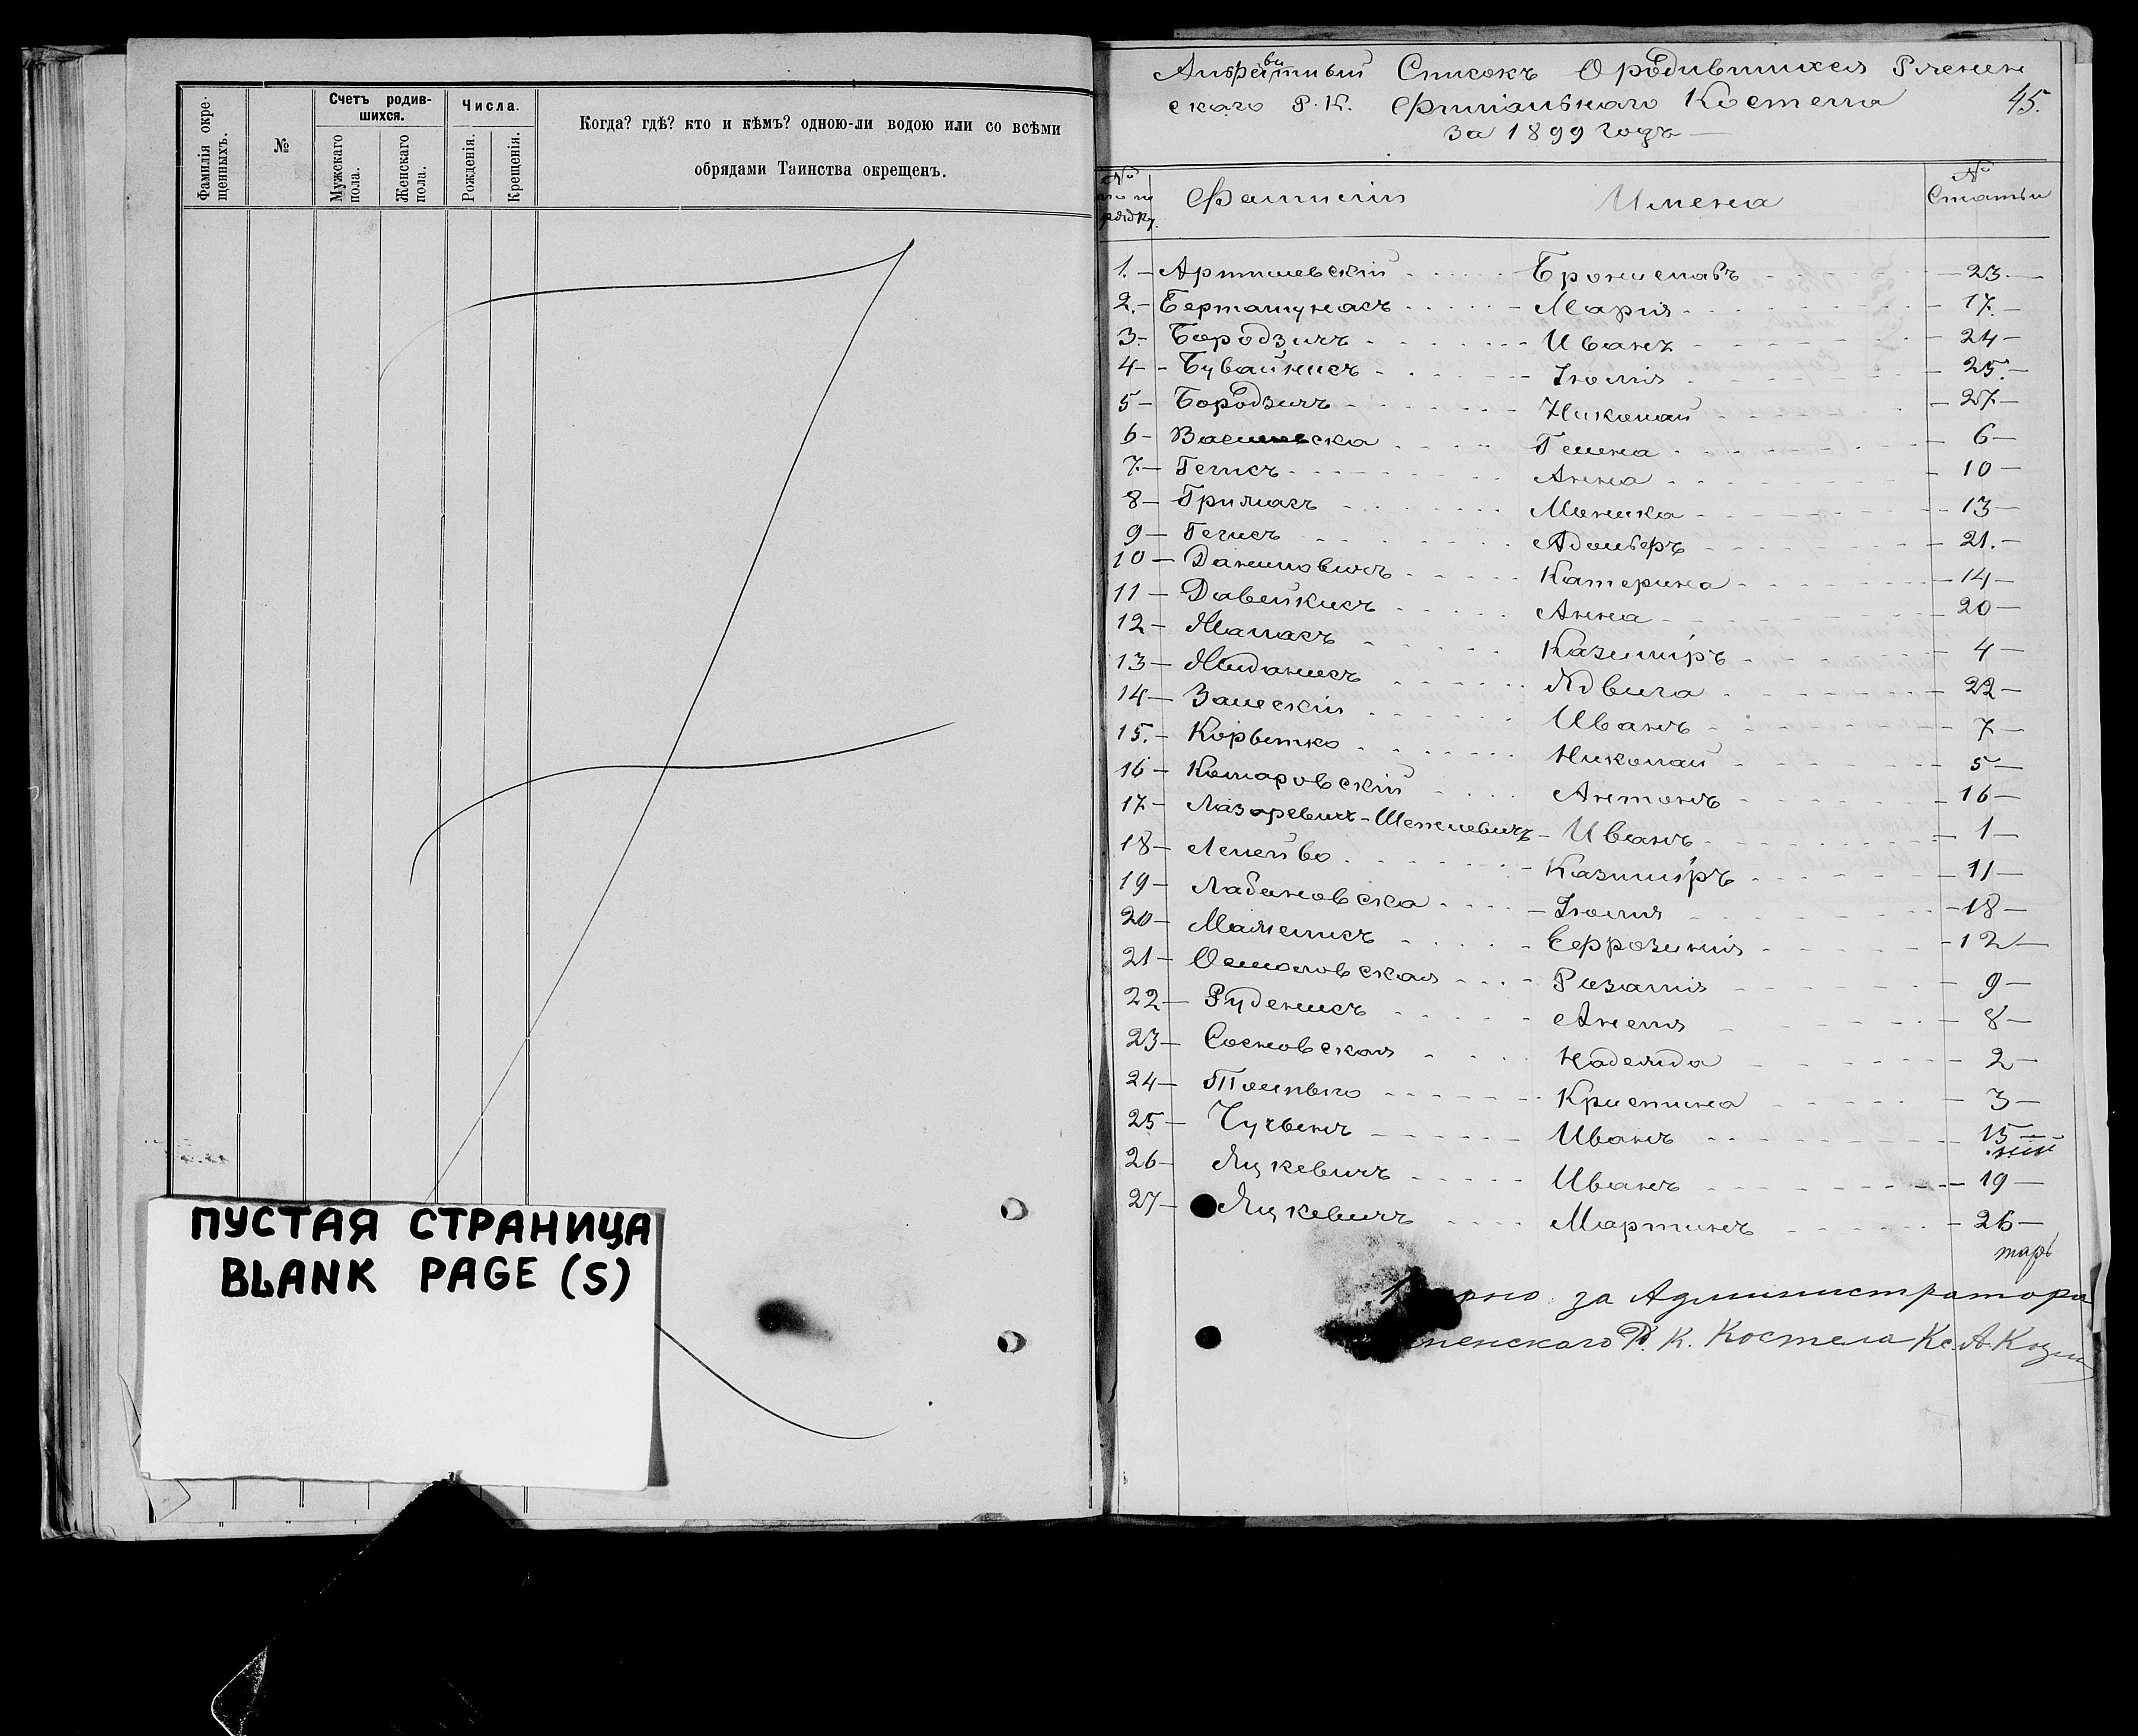 Фамилія окре-
щенныхъ.
№
Счетъ родив-
шихся.
Мужскаго
пола.
Женскаго
пола.
Числа.
Рожденія.
Крещенія.
Когда? гдѣ? кто и кѣмъ? одною-ли водою или со всѣми
обрядами Таинства окрещенъ.
ПУСТАЯ СТРАНИЦА
BLANK PAGE (S)
Списокъ О родившихся
скаго Р. К. Филіальнаго Костела 45.
за 1899 годъ
№ по порядку. Фамиліи Имена № Статьи
1. Артишевскій Брониславъ 23
2. Берташунасъ Марія 17
3. Бородзичъ Иванъ 24
4 Бувайнисъ Іюлія 25
5 Бородзичъ Николай 27
6 Гелена 6
7 Гечисъ Анна 10
8 Гримасъ Моника 13
9 Гечисъ 21
10 Даниловичъ Катерина 14
11 Довейкисъ Анна 20
12 Жалнасъ Казиміръ 4
13 Жиданисъ Ядвига 22
14 Залескій Иванъ 7
15. Корветко Николай 5
16 Комаровскій Антонъ 16
17 Лазаревичъ- Иванъ 1
18 Лепейво Казиміръ 11
19 Лабановска Іюлія 18
20 Мажелисъ Ефрозинія 12
21 Осмоловская Розалія 9
22 Руденисъ Анеля 8
23 Сосновская Надежда 2
24 Кристина 3
25 Иванъ 15
26 Яцкевичъ Иванъ 19
27 Яцкевичъ Мартинъ 26
за Администратора
Р. К. Костела Кс. А.